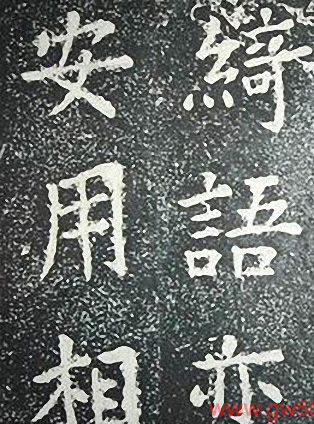 綺語亦
安用相
www.gw60